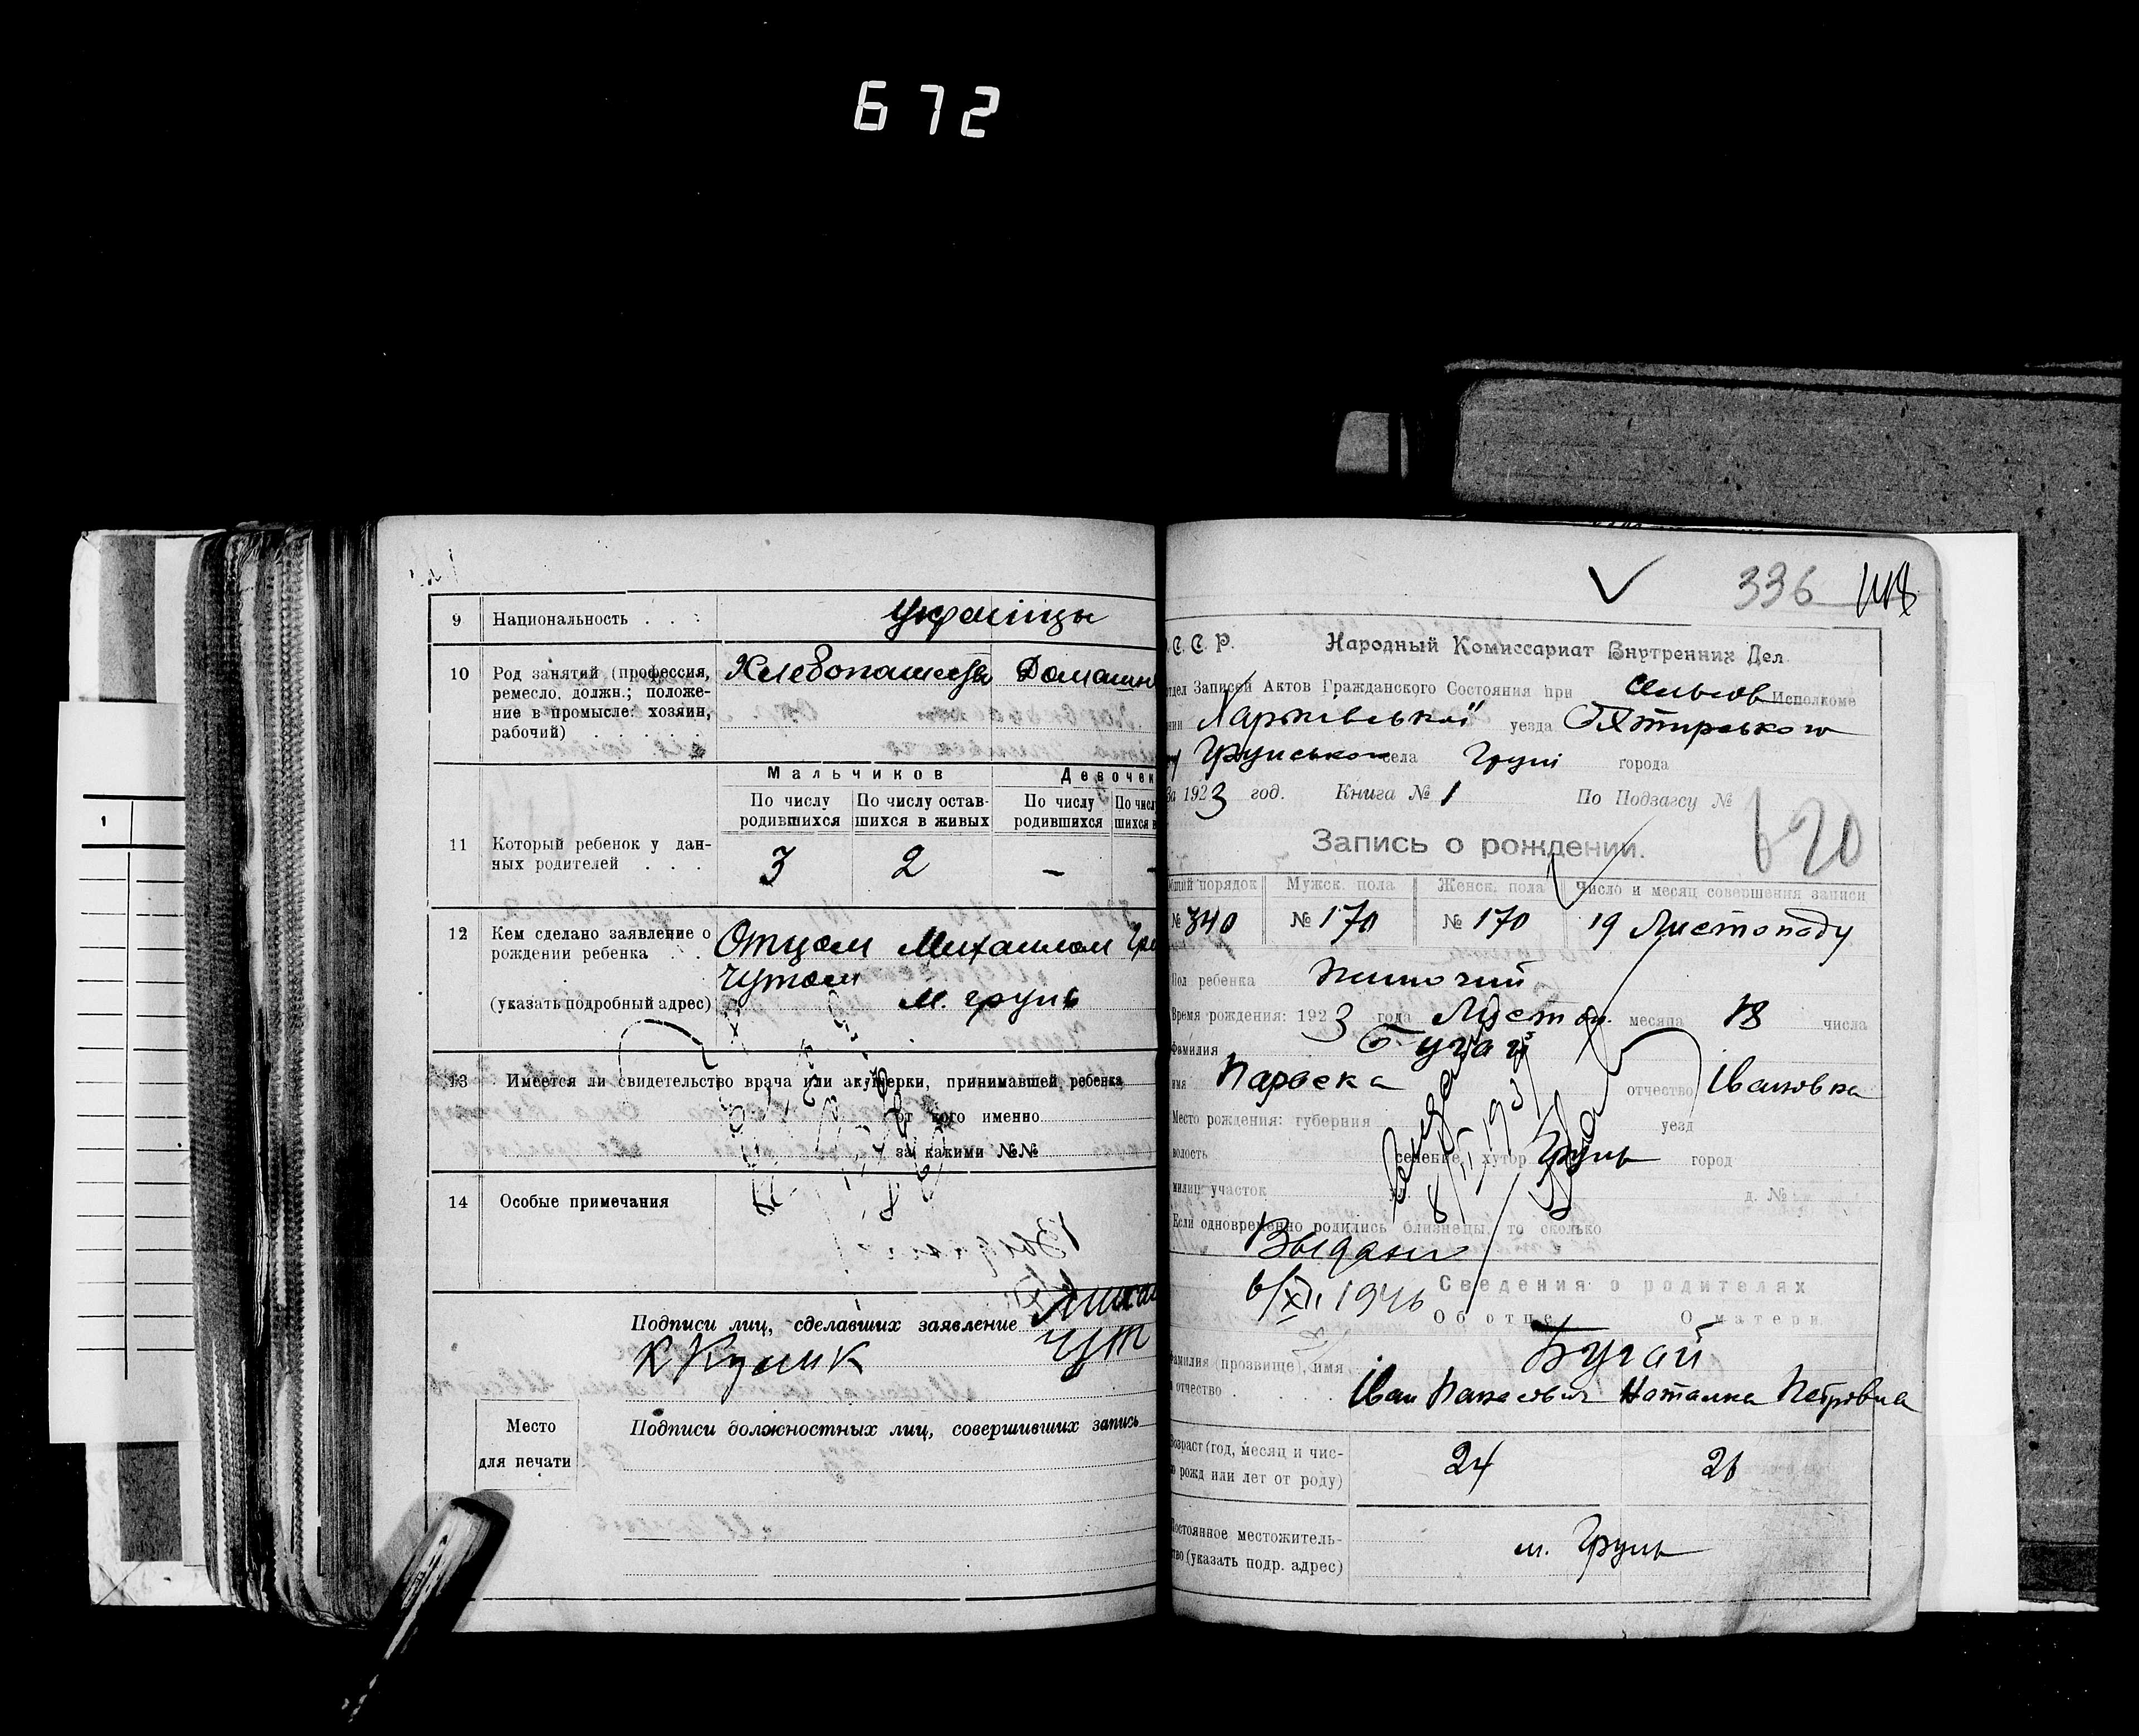 672
9 Национальность . . . украінцы
10 Род занятий (профессия, ремесло, должн.; положение в промысле: хозяин, рабочий) . . . . . .
Хлебопашецъ Домашн
11 Который ребенок у данных родителей . . .
Мальчиков Девочек
По числу родившихся По числу оставшихся в живых По числу родившихся По числ шихся в
3 2 - -
12 Кем сделано заявление о рождении ребенка . .
(указать подробный адрес)
Отцом Михаилом Гри
чутом
м. грунь
13 Имеется ли свидетельство врача или акушерки, принимавшей ребенка
от кого именно
за какими №№
14 Особые примечания
Подписи лиц, сделавших заявление Михаи
К Кулик чут
Место для печати
Подписи должностных лиц, совершивших запись
1
336
С. С. Р. Народный Комиссариат Внутренних Дел
отдел Записей Актов Гражданского Состояния при Исполкоме
нии Харківської уезда Охтирського
Грунського села Груні города
За 1923 год. Книга № 1 По Подзагсу №
620
Запись о рождении.
Общий порядок Мужск. пола Женск. пола Число и месяц совершения записи
№ 340 № 170 № 170 19 Листопаду
Пол ребенка жиночий
Время рождения: 1923 года Листоп. месяца 18 числа
Фамилия Бугай
имя Параска отчество Івановна
Место рождения: губерния уезд
волость селение, хутор Грунь город
милиц. участок д. №
Если одновременно родились близнецы, то сколько
Выдано
6/XII 1946
Сведения о родителях
Об отце О матери
Бугай
Фамилия (прозвище), имя
отчество . . . . Іван Панасович Наталка Петровна
Возраст (год, месяц и число рожд или лет от роду) 24 26
Постоянное местожительство (указать подр. адрес) м. Грунь